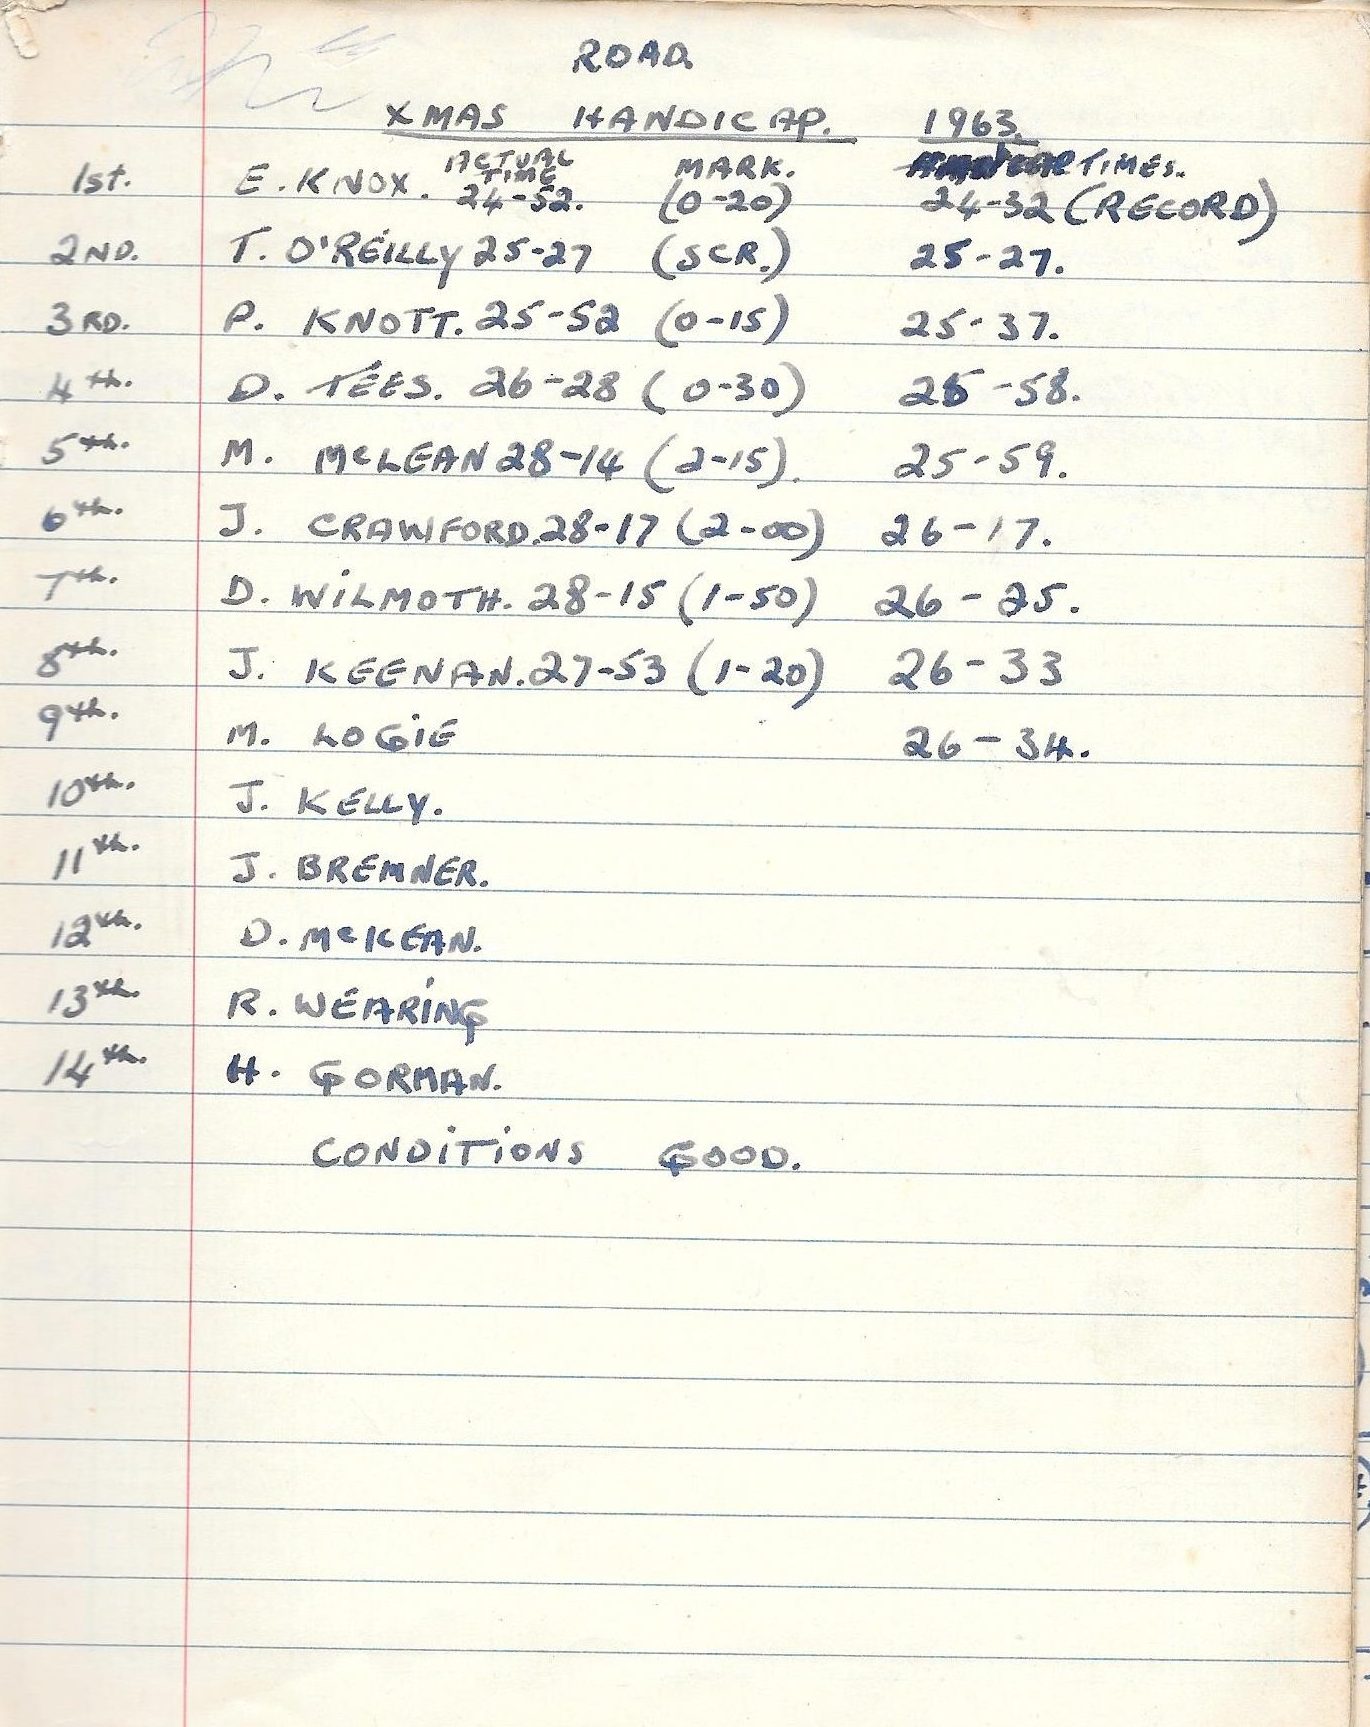 ROAD
XMAS HANDICAP. 1963.
ACTUAL TIME MARK. TIMES.
1st. E. KNOX. 24-52. (0-20) 24-32 (RECORD)
2ND. T. O'REILLY 25-27 (SCR.) 25-27.
3RD. P. KNOTT. 25-52 (0-15) 25-37.
4th. D. TEES. 26-28 (0-30) 25-58.
5th. M. McLEAN 28-14 (2-15). 25-59.
6th. J. CRAWFORD. 28-17 (2-00) 26-17.
7th. D. WILMOTH. 28-15 (1-50) 26-25.
8th. J. KEENAN. 27-53 (1-20) 26-33
9th. M. LOGIE 26-34.
10th. J. KELLY.
11th. J. BREMNER.
12th. D. McKEAN.
13th. R. WEARING
14th. H. GORMAN.
CONDITIONS GOOD.